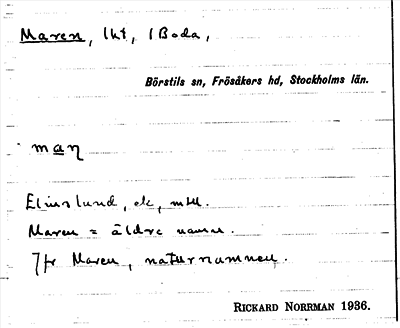 Maren, lht, i Boda,
Börstils sn, Frösåkers hd, Stockholms län.
maṉ
Elinslund, ek, mtl.
Maren = äldre namn.
Jfr Maren, naturnamnen.
RICKARD NORRMAN 1936.